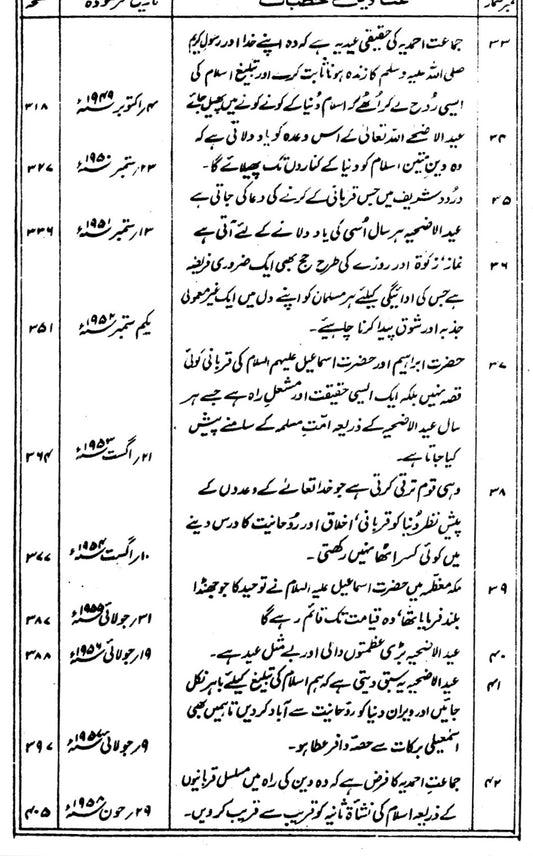 نمبر شمار عناوین خطبات تاریخ فرمودہ صفحہ
۳۳ جماعت احمدیہ کی حقیقی عید یہ ہے کہ وہ اپنے خدا اور رسولِ کریم
صلی اللہ علیہ وسلم کا زندہ ہونا ثابت کرے اور تبلیغ اسلام کی
ایسی رُوح لے کر اُٹھے کہ اسلام دُنیا کے کونے کونے میں پھیل جائے ۴؍اکتوبر ۱۹۴۹ء ۳۱۸
۳۴ عیدالاضحےٰ اللہ تعالیٰ کے اس وعدہ کو یاد دلاتی ہے کہ
وہ دینِ متین اسلام کو دنیا کے کناروں تک پھیلائے گا۔ ۲۳؍ستمبر ۱۹۵۰ء ۳۲۷
۳۵ درُود شریف میں جس قربانی کے کرنے کی دعا کی جاتی ہے
عیدالاضحیہ ہر سال اُسی کی یاد دلانے کے لئے آتی ہے ۱۳؍ستمبر ۱۹۵۱ء ۳۳۶
۳۶ نماز، زکوٰۃ اور روزے کی طرح حج بھی ایک ضروری فریضہ
ہے جس کی ادائیگی کیلئے ہر مسلمان کو اپنے دل میں ایک غیر معمولی
جذبہ اور شوق پیدا کرنا چاہیئے۔ یکم ستمبر ۱۹۵۲ء ۳۵۱
۳۷ حضرت ابراہیم اور حضرت اسماعیل علیہم السلام کی قربانی کوئی
قصہ نہیں بلکہ ایک ایسی حقیقت اور مشعلِ راہ ہے جسے ہر
سال عیدالاضحیہ کے ذریعہ امّتِ مسلمہ کے سامنے پیش
کیا جاتا ہے۔ ۲۱؍اگست ۱۹۵۳ء ۳۶۴
۳۸ وہی قوم ترقی کرتی ہے جو خدا تعالےٰ کے وعدوں کے
پیش نظر دُنیا کو قربانی، اخلاق اور رُوحانیت کا درس دینے
میں کوئی کسر اٹھا نہیں رکھتی۔ ۱۰؍اگست ۱۹۵۴ء ۳۷۷
۳۹ مکہ معظّمہ میں حضرت اسماعیل علیہ السلام نے توحید کا جو جھنڈا
بلند فرمایا تھا، وہ قیامت تک قائم رہے گا ۳۱؍جولائی ۱۹۵۵ء ۳۸۷
۴۰ عیدالاضحیہ بڑی عظمتوں والی اور بے مثل عید ہے۔ ۱۹؍جولائی ۱۹۵۶ء ۳۸۸
۴۱ عیدالاضحیہ یہ سبق دیتی ہے کہ ہم اسلام کی تبلیغ کیلئے باہر نکل
جائیں اور ویران دنیا کو رُوحانیت سے آباد کردیں تا ہمیں بھی
اسمٰعیلی برکات سے حصّہ وافر عطا ہو۔ ۹؍جولائی ۱۹۵۷ء ۳۹۷
۴۲ جماعتِ احمدیہ کا فرض ہے کہ وہ دین کی راہ میں مسلسل قربانیوں
کے ذریعہ اسلام کی نشاۃِ ثانیہ کو قریب سے قریب کر دیں۔ ۲۹؍جون ۱۹۵۸ء ۴۰۵